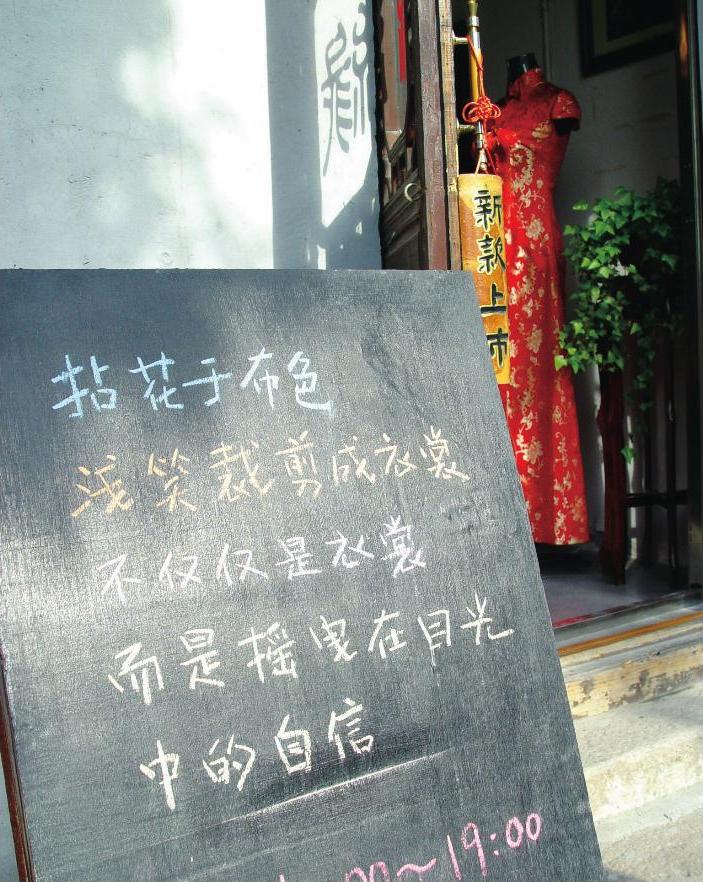 新款上市
拈花于布色
浅笑裁剪成衣裳
不仅仅是衣裳
而是摇曳在目光
中的自信
00~19:00